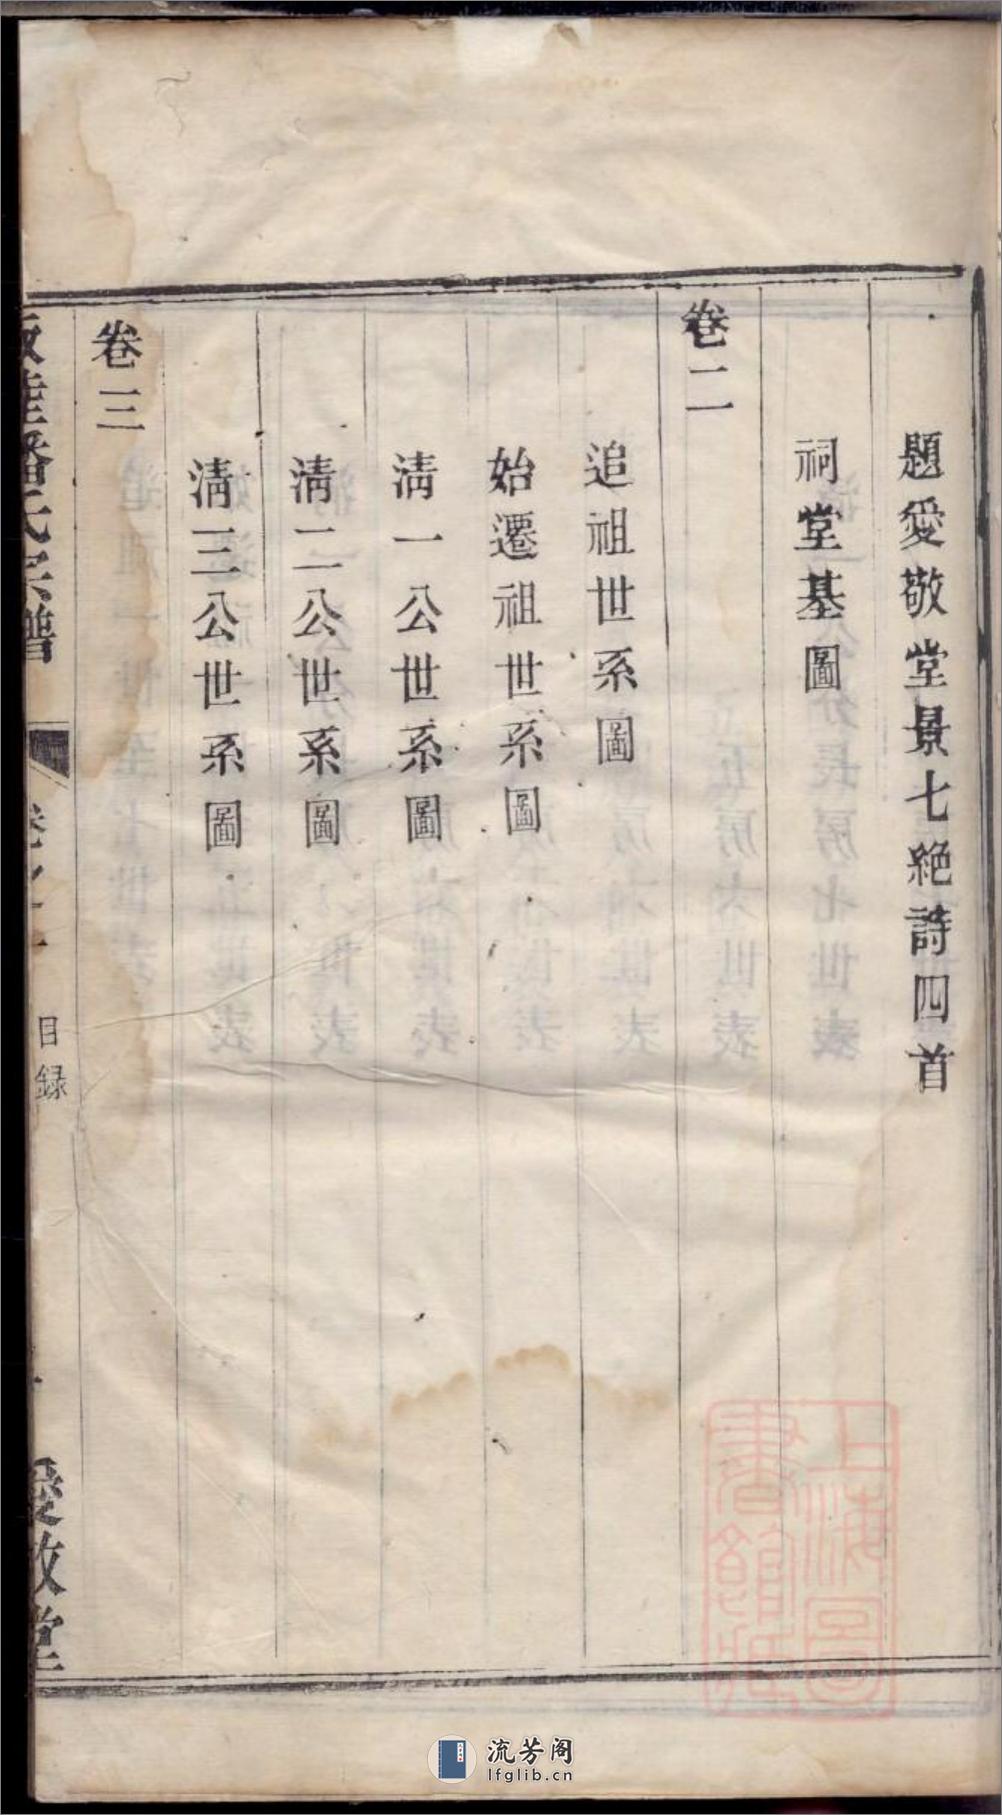 題愛敬堂景七絶詩四首
祠堂基圖
卷二
追祖世系圖
始遷祖世系圖
淸一公世系圖
淸二公世系圖
淸三公世系圖
卷三
潘氏宗譜
卷之一
目録
愛敬堂
上海圖書館藏
流芳阁
lfglib.cn